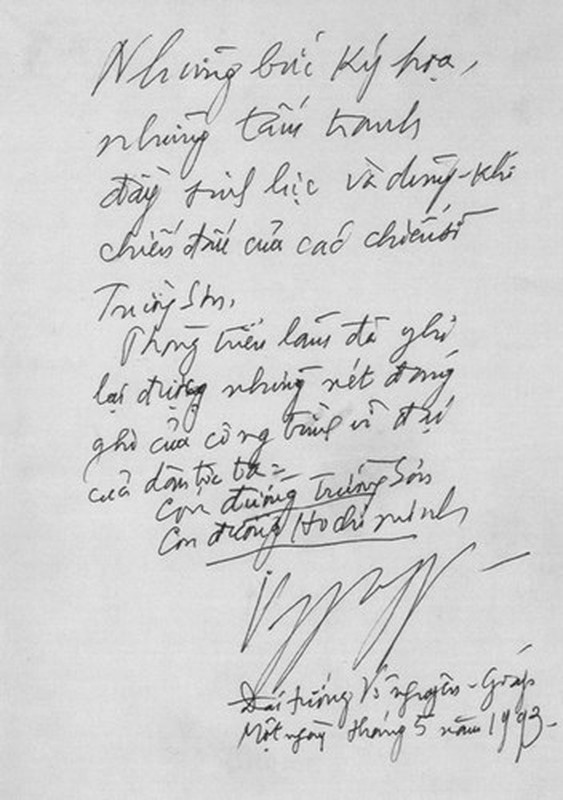 Những bức ký họa,
những tấm tranh
đầy sinh lực và dũng-khí
chiến đấu của các chiến sĩ
Trường Sơn.
Phòng triển lãm đã ghi
lại được những nét đáng
ghi của công trình vĩ đại
của dân tộc ta =
Con đường Trường Sơn
Con đường Hồ chí minh
Đại tướng Võ nguyên-Giáp
Một ngày tháng 5 năm 1993-